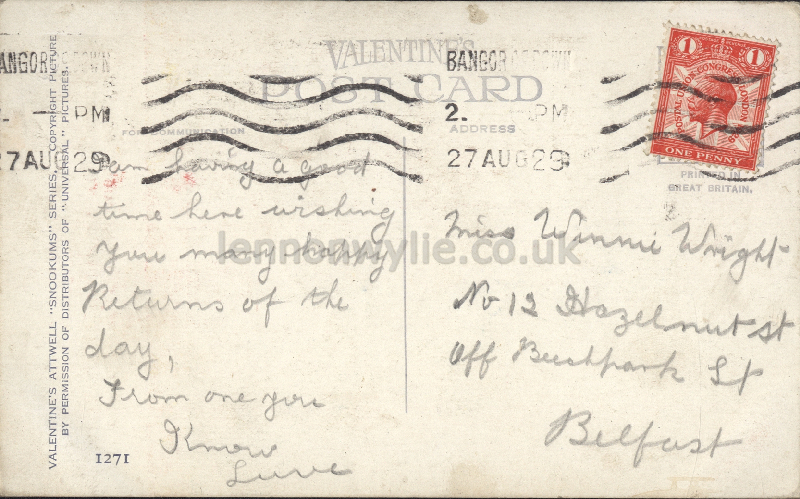 VALENTINE'S
POST CARD
BANGOR CO DOWN
BANGOR CO DOWN
2. PM
2. PM
27 AUG 29
27 AUG 29
FOR COMMUNICATION
ADDRESS
1 1
POSTAL UNION CONGRESS LONDON 1929
ONE PENNY
PRINTED IN
GREAT BRITAIN.
VALENTINE'S ATTWELL "SNOOKUMS" SERIES, COPYRIGHT PICTURE
BY PERMISSION OF DISTRIBUTORS OF "UNIVERSAL" PICTURES.
I am having a good
time here wishing
you many happy
Returns of the
day,
From one you
Know
Luve
1271
Miss Winnie Wright
No 12 Hazelnut St
Off Beechpark St
Belfast
lennonwylie.co.uk